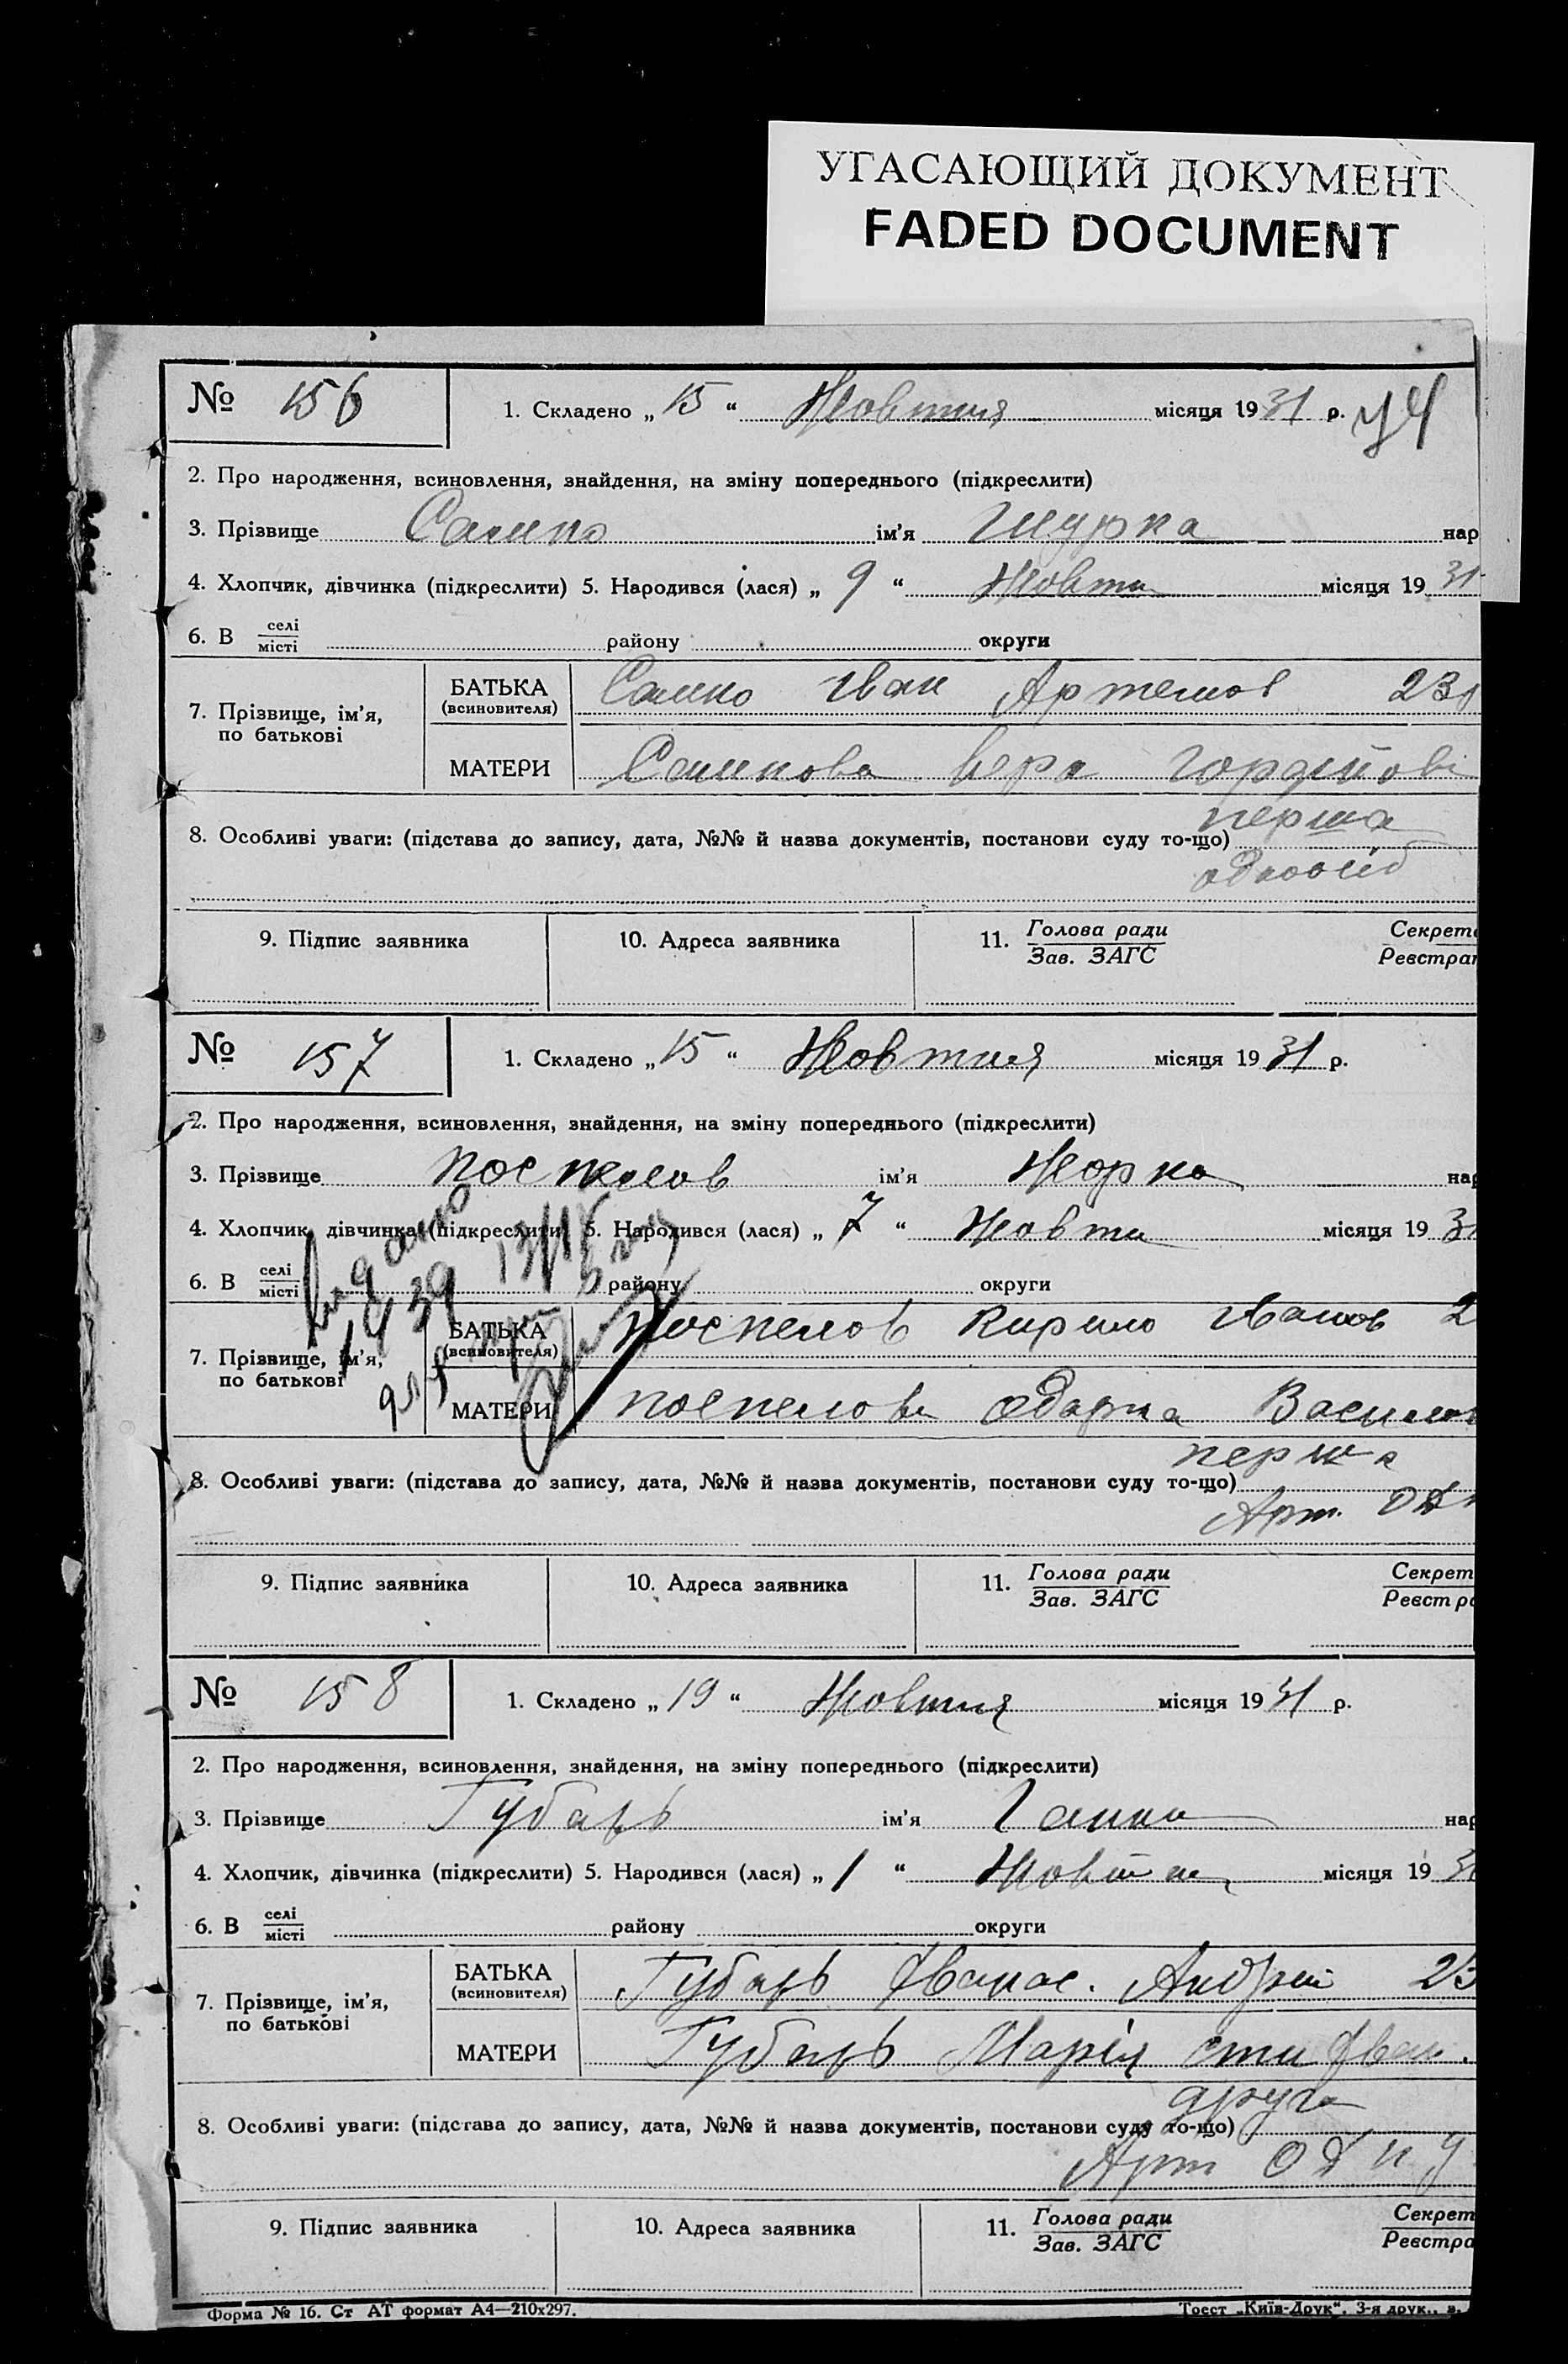 УГАСАЮЩИЙ ДОКУМЕНТ
FADED DOCUMENT
№ 156 1. Складено „ 15 “ Жовтня місяця 1931 р.
2. Про народження, всиновлення, знайдення, на зміну попереднього (підкреслити)
3. Прізвище Самко ім’я Шурка нар
4. Хлопчик, дівчинка (підкреслити) 5. Народився (лася) „ 9 “ Жовтн місяця 1931
6. В селі місті району округи
7. Прізвище, ім’я, по батькові
БАТЬКА (всиновителя) Самко Іван Артемов 23
МАТЕРИ Самкова Вера Гордійові
перша
8. Особливі уваги: (підстава до запису, дата, №№ й назва документів, постанови суду то-що)
одноосіб
9. Підпис заявника 10. Адреса заявника 11. Голова ради Секрет
Зав. ЗАГС Реєстра
№ 157 1. Складено „ 15 “ Жовтня місяця 1931 р.
2. Про народження, всиновлення, знайдення, на зміну попереднього (підкреслити)
3. Прізвище Поспелов ім’я Жорка нар
4. Хлопчик, дівчинка (підкреслити) 5. Народився (лася) „ 7 “ Жовтн місяця 193
6. В селі місті району округи
7. Прізвище, ім’я, по батькові
БАТЬКА (всиновителя) Поспелов Кирило Іванов 2
МАТЕРИ Поспелова Одарка Василов
перша
8. Особливі уваги: (підстава до запису, дата, №№ й назва документів, постанови суду то-що)
Арт.
9. Підпис заявника 10. Адреса заявника 11. Голова ради Секрет
Зав. ЗАГС Реєстра
№ 158 1. Складено „ 19 “ Жовтня місяця 1931 р.
2. Про народження, всиновлення, знайдення, на зміну попереднього (підкреслити)
3. Прізвище Губарь ім’я Ганна нар
4. Хлопчик, дівчинка (підкреслити) 5. Народився (лася) „ 1 “ Жовтн місяця 193
6. В селі місті району округи
7. Прізвище, ім’я, по батькові
БАТЬКА (всиновителя) Губарь Андрій
МАТЕРИ Губарь Марія
друга
8. Особливі уваги: (підстава до запису, дата, №№ й назва документів, постанови суду то-що)
Арт
9. Підпис заявника 10. Адреса заявника 11. Голова ради Секрет
Зав. ЗАГС Реєстра
Форма № 16. Ст АТ формат А4—210х297. Трест „Київ-Друк“. 3-я друк., в.